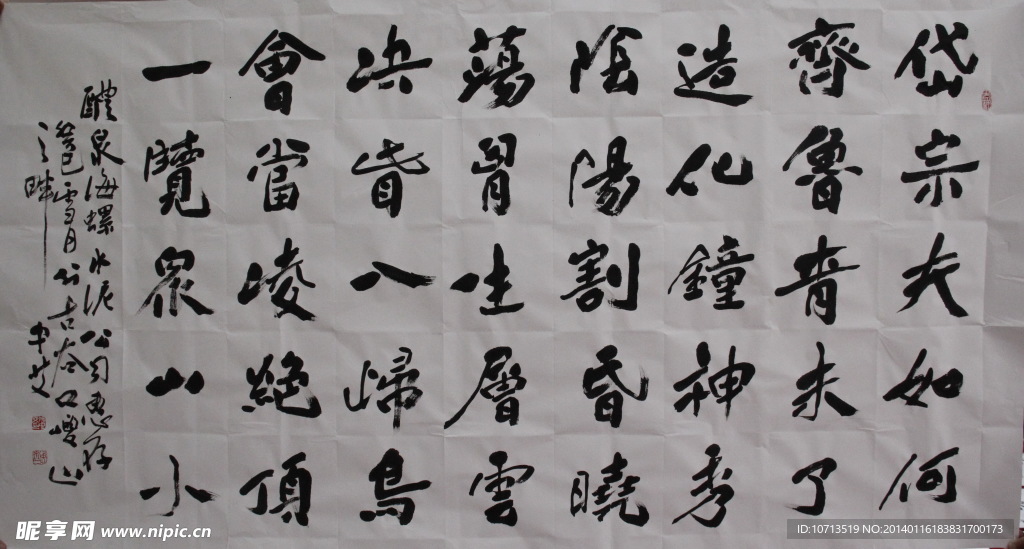 岱宗夫如何
齊魯青未了
造化鐘神秀
陰陽割昏曉
蕩胷生層雲
决眥入歸鳥
會當凌絕頂
一覽眾山小
醴泉海螺水泥公司惠存
癸巳雪月於古谷口嵕山
之畔
昵享网 www.nipic.cn
ID:10713519 NO:20140116183831700173